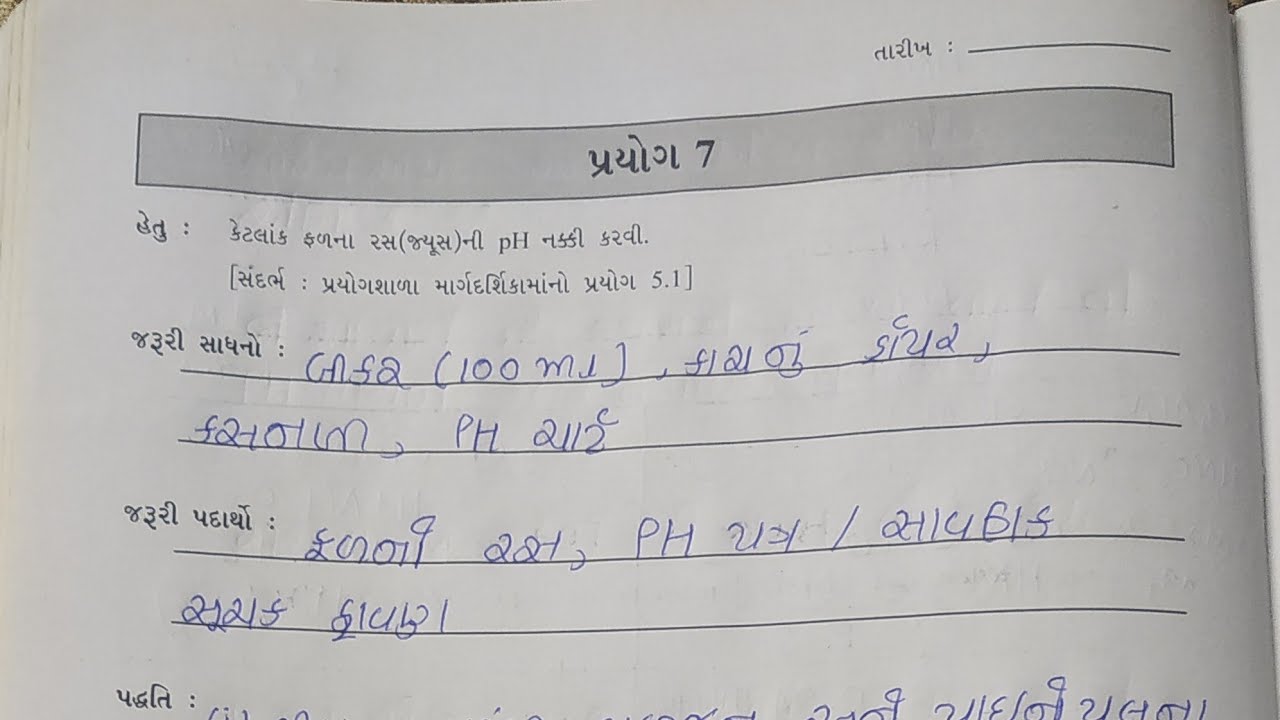 તારીખ :
પ્રયોગ 7
હેતુ : કેટલાંક ફળના રસ(જ્યૂસ)ની pH નક્કી કરવી.
[સંદર્ભ : પ્રયોગશાળા માર્ગદર્શિકામાંનો પ્રયોગ 5.1]
જરૂરી સાધનો : બીકર (100 mL), કાચનું ડ્રૉપર,
કસનળી, PH ચાર્ટ
જરૂરી પદાર્થો : ફળની રસ, PH પત્ર / સાર્વત્રિક
સૂચક દ્રાવણ
પદ્ધતિ : (i)